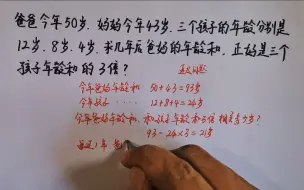 爸爸今年50岁、妈妈今年43岁.三个孩子的年龄分别是
12岁、8岁、4岁.求几年后爸妈的年龄和,正好是三个
孩子年龄和的3倍?
今年爸妈年龄和 50+43=93岁
今年孩子 12+8+4=24岁
今年爸妈年龄和,和孩子年龄和3倍相差多少岁?
93-24×3=21岁
每过1年 爸